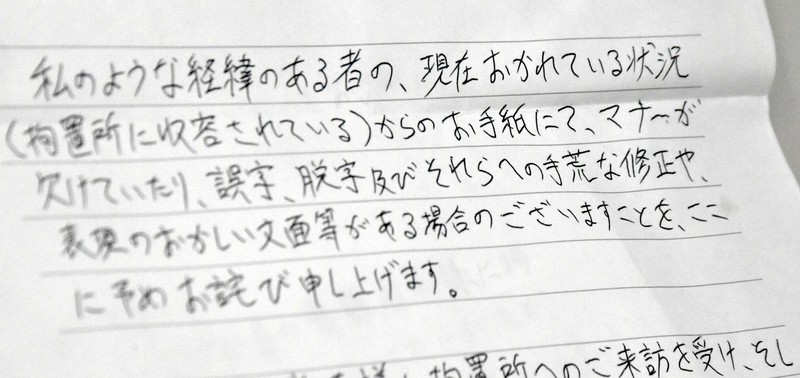 私のような経緯のある者の、現在おかれている状況
(拘置所に収容されている)からのお手紙にて、マナーが
欠けていたり、誤字、脱字及びそれらへの手荒な修正や、
表現のおかしい文面等がある場合のございますことを、ここ
に予めお詫び申し上げます。
様 拘置所へのご来訪を受け、そし